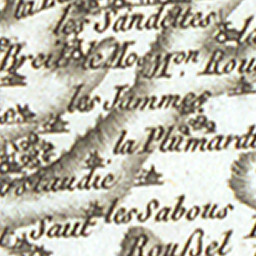 les Sandettes
Breil le Mog Mon. Rou
les Jammes
la Plumardi
taudie
Saut les Sabous
Roußel